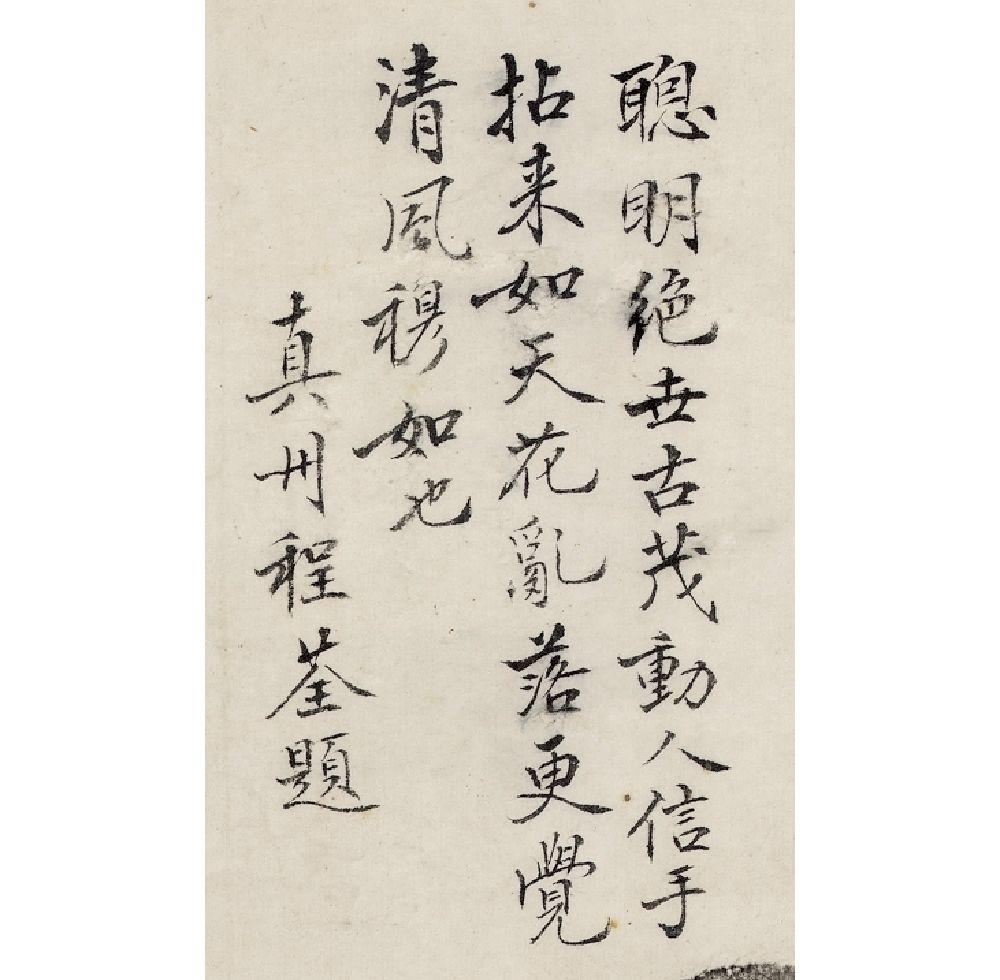 聰明絕世古茂動人信手
拈来如天花亂落更覺
清風穆如也
真州程荃題